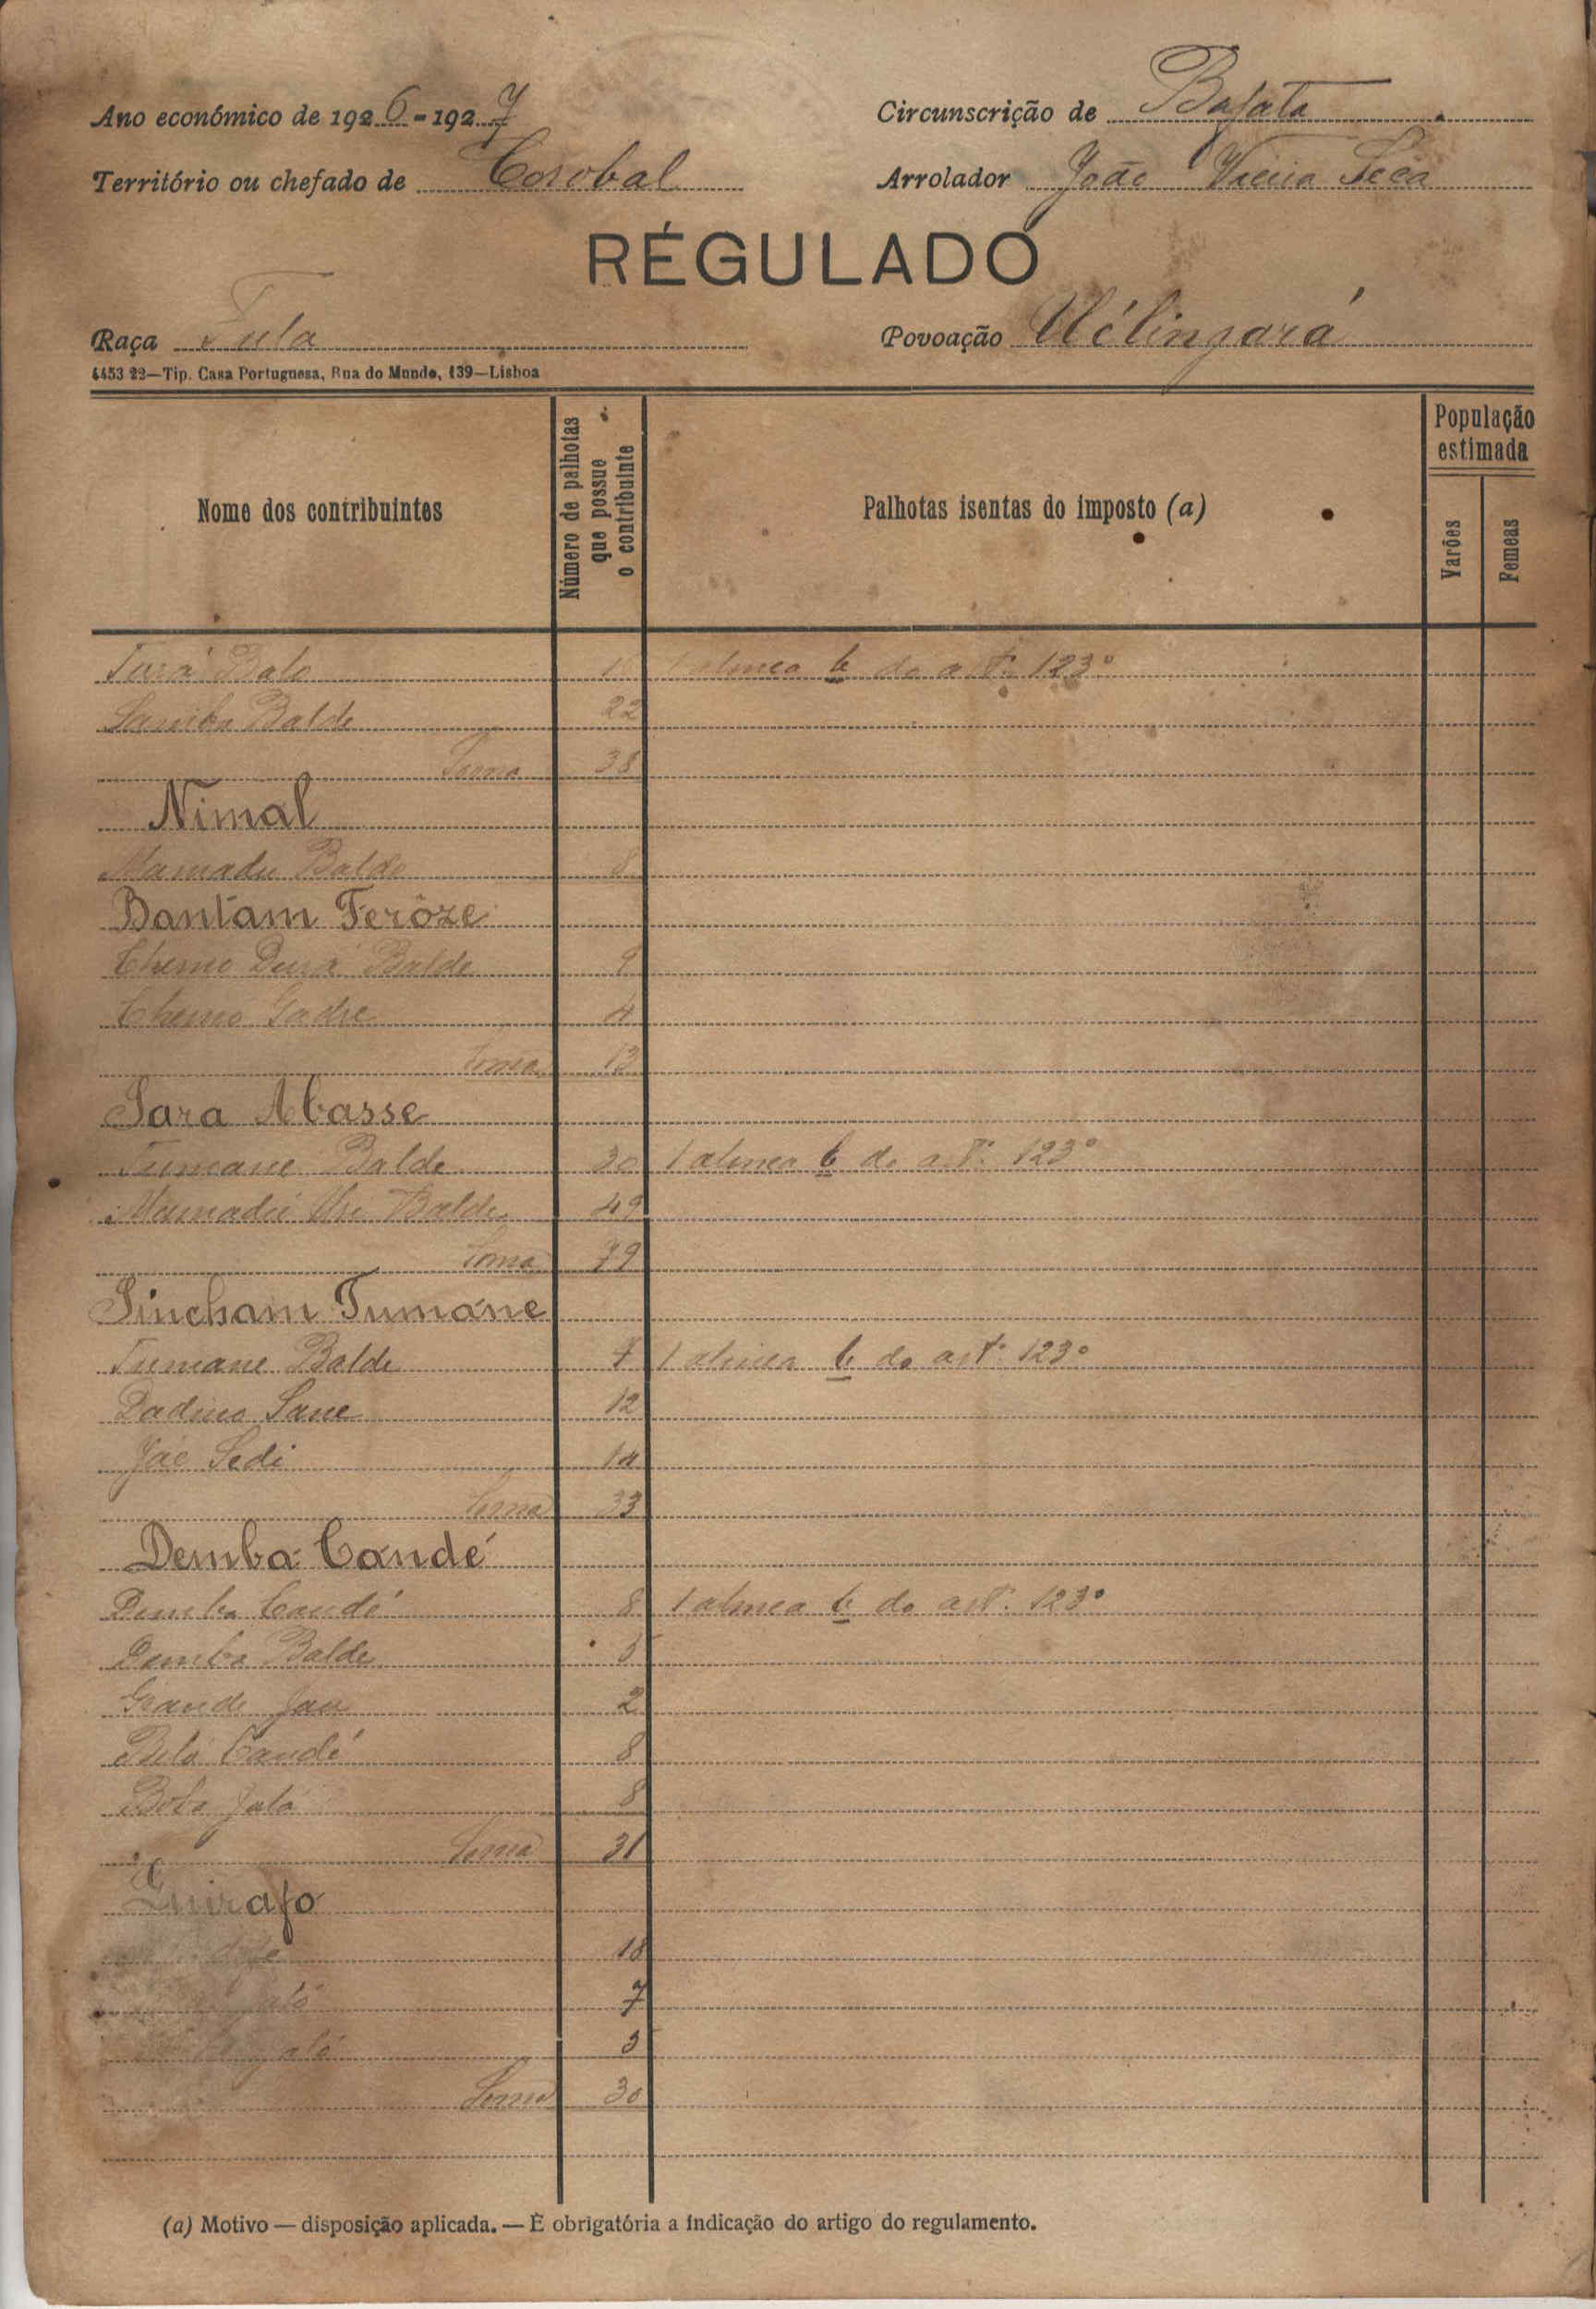 Ano económico de 1926-1927
Circunscrição de Bafata
Território ou chefado de Corobal
Arrolador João Vieira Seca
RÉGULADO
Raça Fula
Povoação Uélingará
4453 22—Tip. Casa Portuguesa, Rua do Mundo, 139—Lisboa
Nome dos contribuintes
Número de palhotas que possue o contribuinte
Palhotas isentas do imposto (a)
População estimada
Varões
Femeas
Balo 1 alinea b do artº 123º
Samba Balde 22
Soma 38
Nimal
Mamadu Balde 8
Bantam Ferôze
Balde 9
4
Soma 13
Sara Abasse
Tumane Balde 30 1 alinea b do artº 123º
Mamadú Balde 49
Soma 79
Sincham Tumane
Tumane Balde 7 1 alinea b do artº 123º
Sane 12
Sedi 14
Soma 33
Demba Candé
Demba Candé 8 1 alinea b do artº 123º
Demba Balde 5
2
Candé 8
8
Soma 31
Guirafo
18
7
5
Soma 30
(a) Motivo — disposição aplicada. — É obrigatória a indicação do artigo do regulamento.